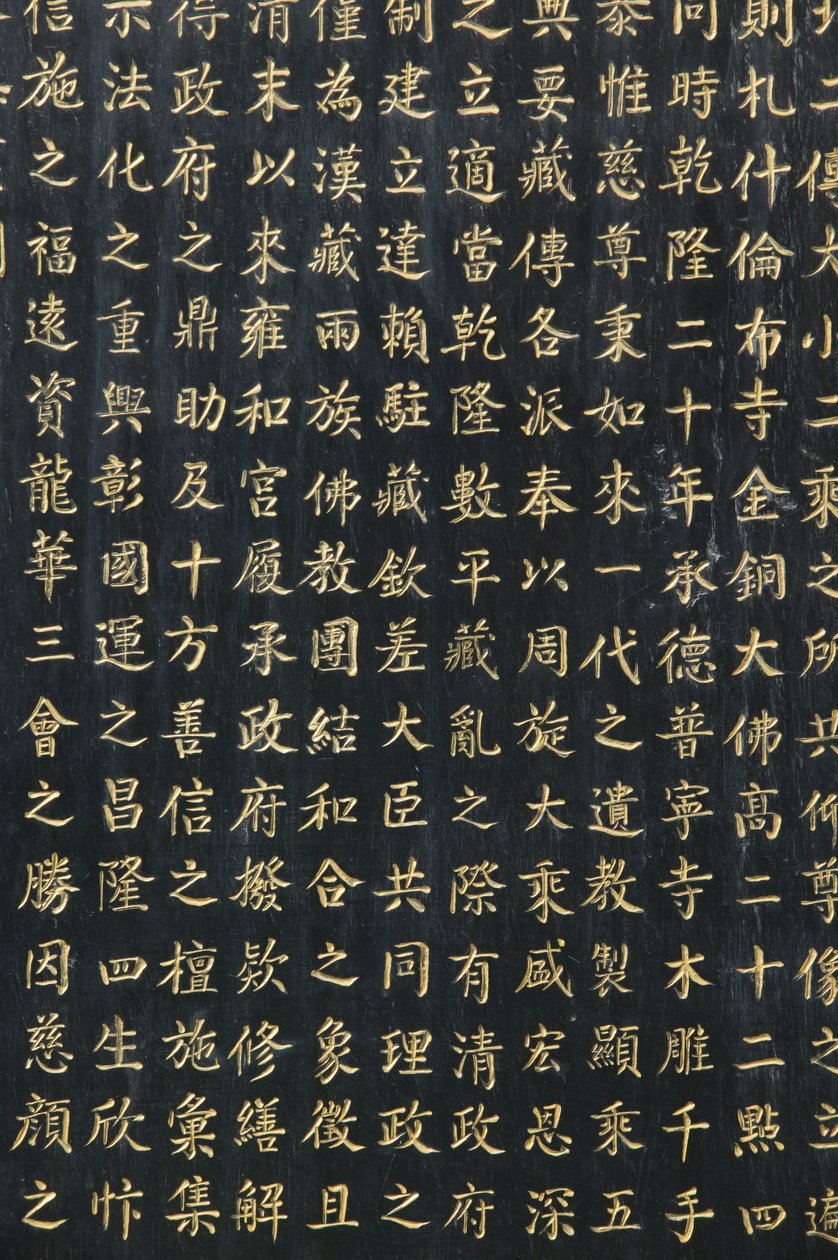 二傳大小二乘之所共仰尊像之立遍
則札什倫布寺金銅大佛高二十二點四
同時乾隆二十年承德普寧寺木雕千手
泰惟慈尊秉如來一代之遺教製顯乘五
典要藏傳各派奉以周旋大乘盛宏恩深
之立適當乾隆數平藏亂之際有清政府
制建立達賴駐藏欽差大臣共同理政之
僅為漢藏兩族佛教團結和合之象徵且
清末以來雍和宮履承政府撥款修繕解
得政府之鼎助及十方善信之檀施彙集
示法化之重興彰國運之昌隆四生欣忭
信施之福遠資龍華三會之勝因慈顏之